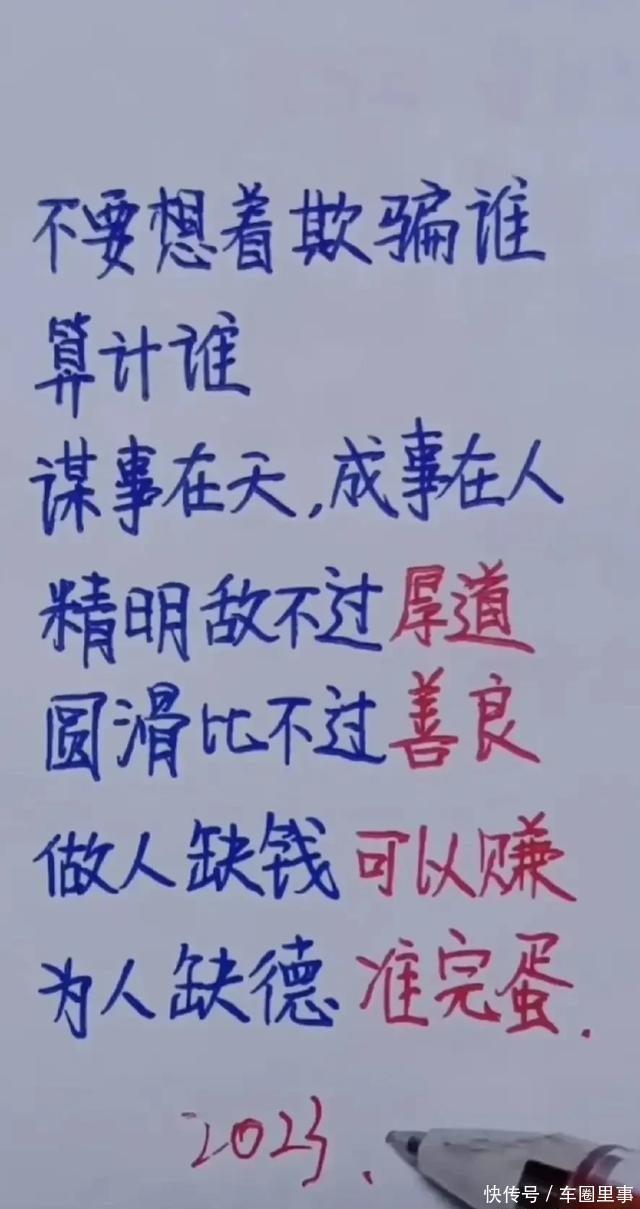 不要想着欺骗谁
算计谁
谋事在天,成事在人
精明敌不过厚道
圆滑比不过善良
做人缺钱可以赚
为人缺德准完蛋.
2023.
快传号/车圈里事